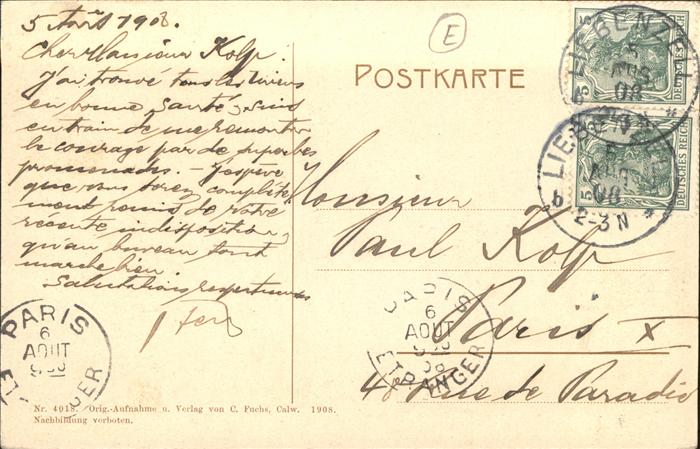 5 Août 1908.
Cher Monsieur Kolp.
J'ai trouvé tous les miens
en bonne santé, suis
en train de me remonter
le courage par de superbes
promenades. — J'espère
que vous serez complète
ment remis de votre
récente indisposition,
qu'au bureau tout
marche bien.
Salutations respectueuses
E
POSTKARTE
5
DEUTSCHES REICH
5
DEUTSCHES REICH
LIEBENZELL
5
AUG
08
b
LIEBENZELL
5
AUG
08
b 2-3 N
Monsieur
Paul Kolp
Paris X
48 rue de Paradis
PARIS
6
AOUT
ETRANGER
PARIS
6
AOUT
08
ETRANGER
Nr. 4018. Orig.-Aufnahme u. Verlag von C. Fuchs, Calw. 1908.
Nachbildung verboten.